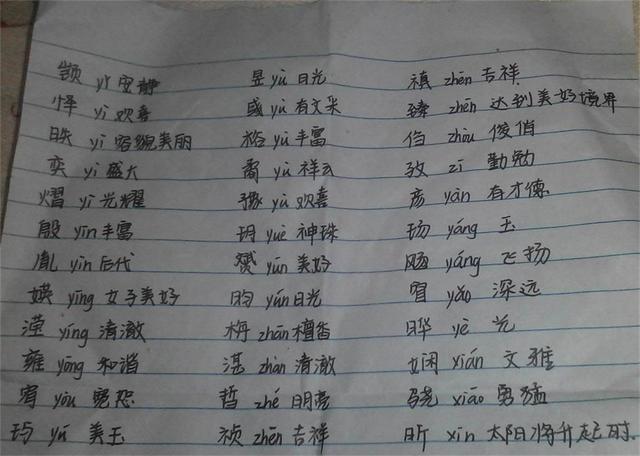 顗 yǐ 安静 昱 yù 日光 禛 zhēn 吉祥
怿 yì 欢喜 彧 yù 有文采 臻 zhēn 达到美好境界
昳 yì 容貌美丽 裕 yù 丰富 㑇 zhòu 俊俏
奕 yì 盛大 矞 yù 祥云 孜 zī 勤勉
熠 yì 光耀 豫 yù 欢喜 彦 yàn 有才德
殷 yīn 丰富 玥 yuè 神珠 玚 yáng 玉
胤 yìn 后代 赟 yūn 美好 飏 yáng 飞扬
媖 yīng 女子美好 昀 yún 日光 窅 yǎo 深远
滢 yíng 清澈 栴 zhān 檀香 晔 yè 光
雍 yōng 和谐 湛 zhàn 清澈 娴 xián 文雅
宥 yòu 宽恕 哲 zhé 明亮 骁 xiāo 勇猛
玙 yú 美玉 祯 zhēn 吉祥 昕 xīn 太阳将升起时